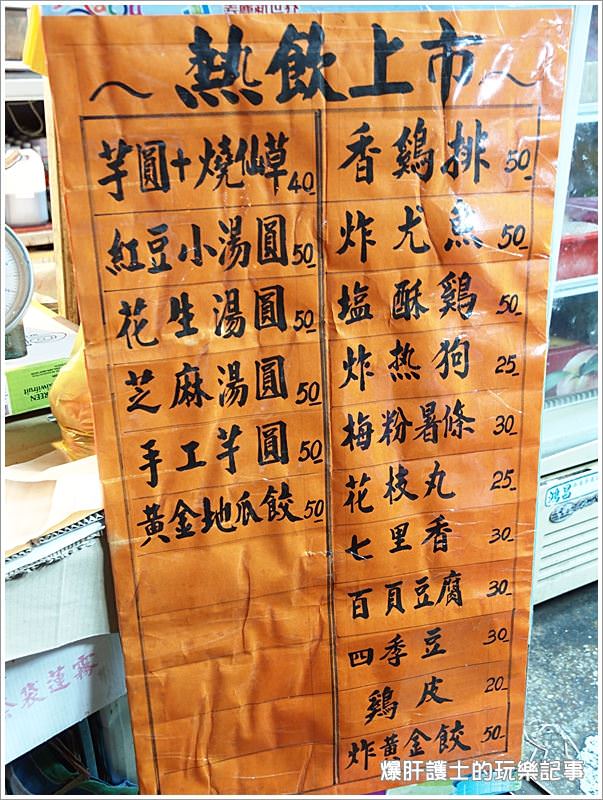 ～熱飲上市～
芋圓+燒仙草40
紅豆小湯圓50
花生湯圓50
芝麻湯圓50
手工芋圓50
黃金地瓜餃50
香鷄排50
炸尤魚50
塩酥鷄50
炸热狗25
梅粉暑條30
花枝丸25
七里香30
百頁豆腐30
四季豆30
鷄皮20
炸黃金餃50
鴻昌
爆肝護士的玩樂記事